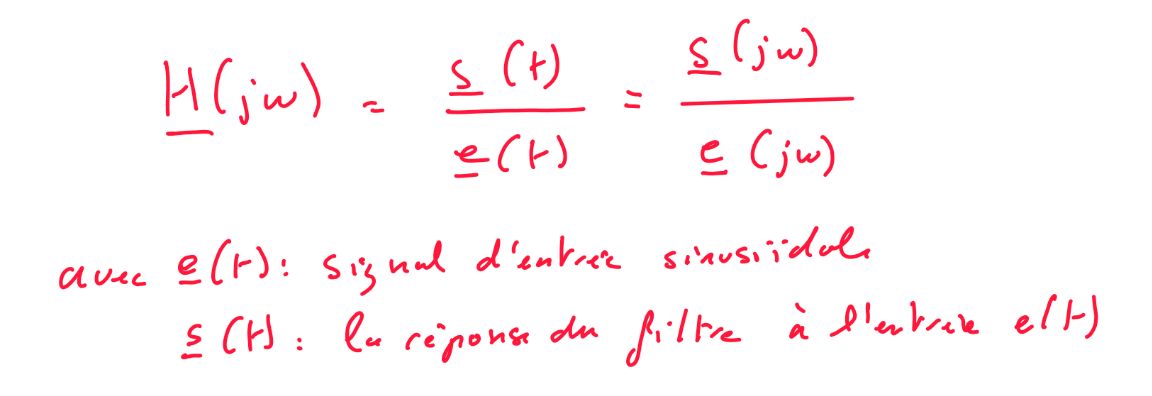 H(jω) = s(t) / e(t) = s(jω) / e(jω)
avec e(t) : signal d'entrée sinusiidale
s(t) : la réponse du filtre à l'entrée e(t)